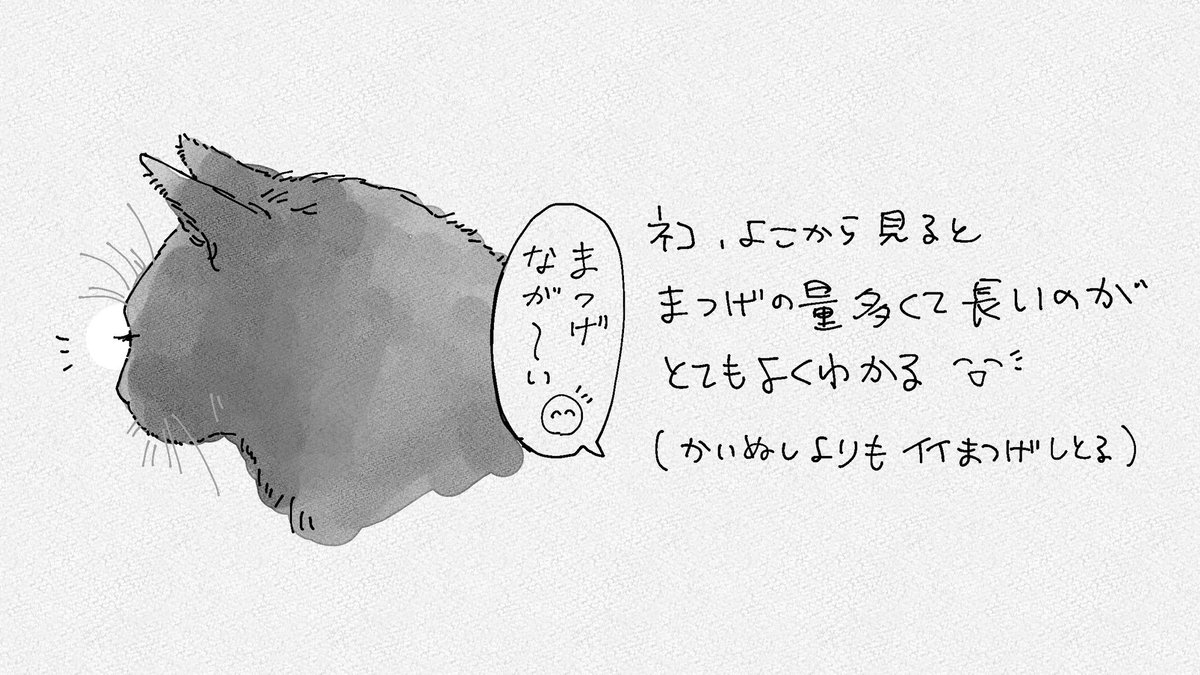 まつげ
なが〜い
ネコ、よこから見ると
まつげの量多くて長いのが
とてもよくわかる
(かいぬしよりもイイまつげしとる)